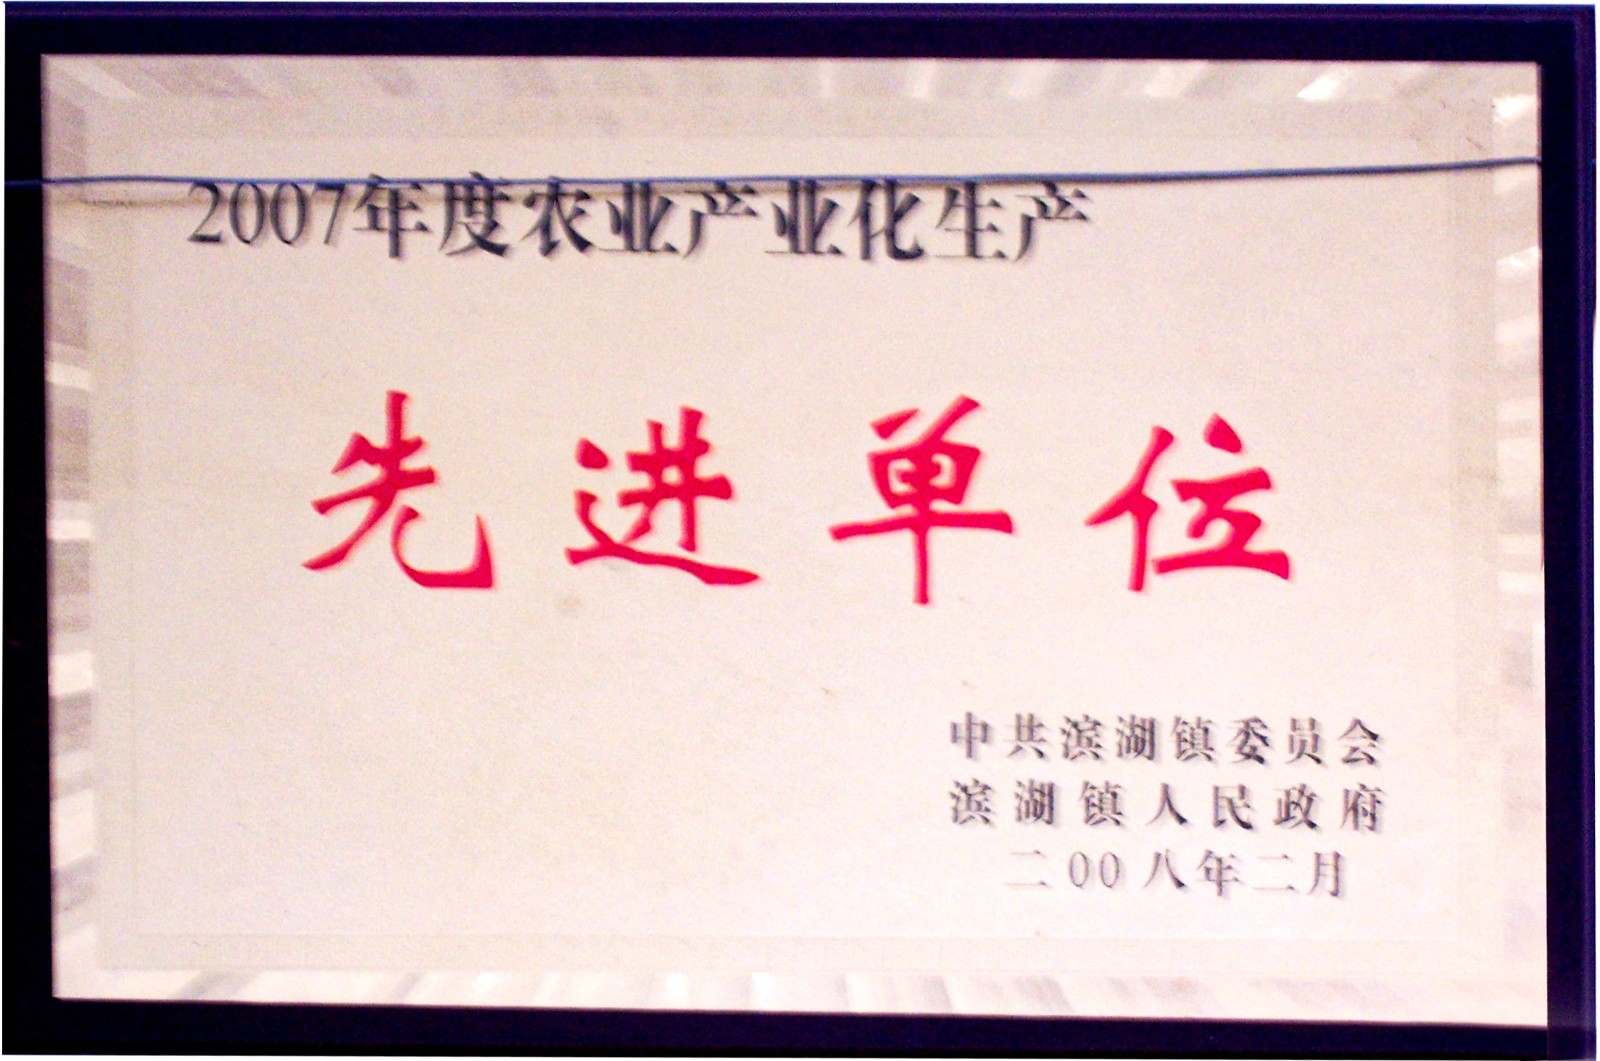 2007年度农业产业化生产
先进单位
中共滨湖镇委员会
滨湖镇人民政府
二00八年二月